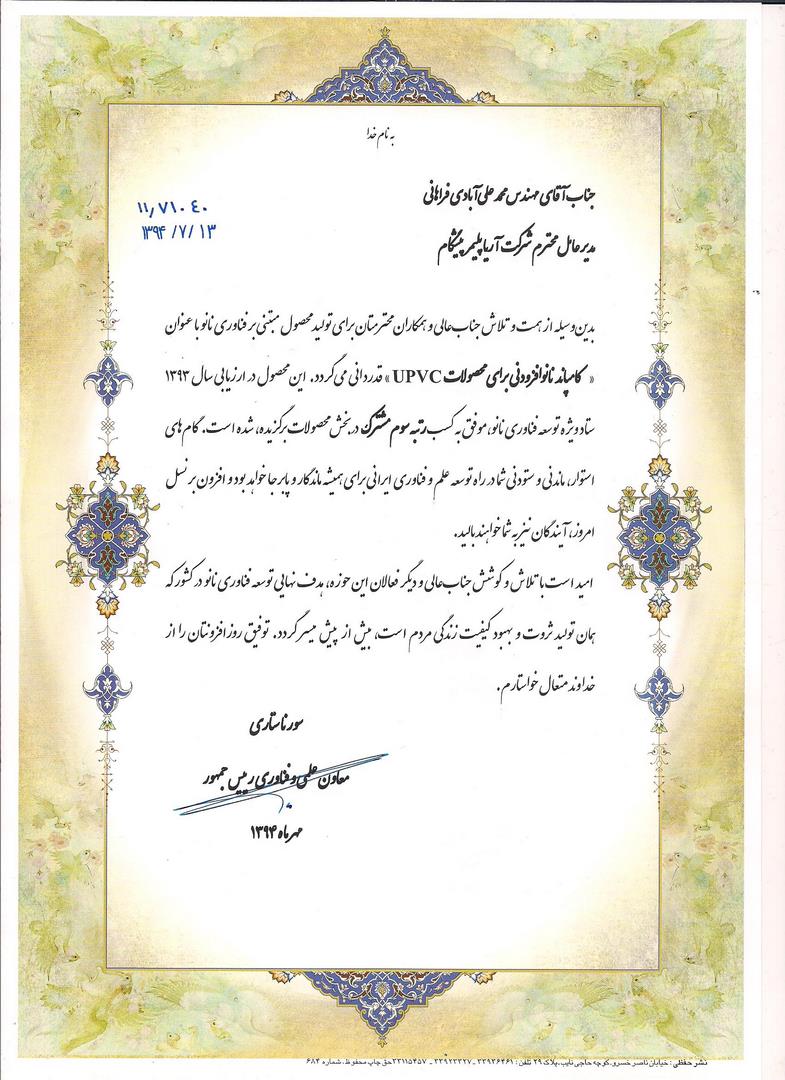 به نام خدا
جناب آقای مهندس محمد علی آبادی فراهانی
۱۱/۷۱۰۴۰
مدیرعامل محترم شرکت آریا پلیمر پیشگام
۱۳۹۴/۷/۱۳
بدین وسیله از همت و تلاش جناب عالی و همکاران محترمتان برای تولید محصول مبتنی بر فناوری نانو با عنوان
« کامپاند نانو افزودنی برای محصولات UPVC » قدردانی می گردد. این محصول در ارزیابی سال ۱۳۹۳
ستاد ویژه توسعه فناوری نانو، موفق به کسب رتبه سوم مشترک در بخش محصولات برگزیده، شده است. گام های
استوار، ماندنی و ستودنی شما در راه توسعه علم و فناوری ایرانی برای همیشه ماندگار و پابرجا خواهد بود و افزون بر نسل
امروز، آیندگان نیز به شما خواهند بالید.
امید است با تلاش و کوشش جناب عالی و دیگر فعالان این حوزه، هدف نهایی توسعه فناوری نانو در کشور که
همان تولید ثروت و بهبود کیفیت زندگی مردم است، بیش از پیش میسر گردد. توفیق روزافزونتان را از
خداوند متعال خواستارم.
سورنا ستاری
معاون علمی و فناوری رییس جمهور
مهرماه ۱۳۹۴
نشر حفظی : خیابان ناصر خسرو، کوچه حاجی نایب، پلاک ۲۹ تلفن : ۳۳۹۳۶۴۶۱ - ۳۳۹۲۳۳۲۷ - ۳۳۱۱۵۴۵۷ حق چاپ محفوظ، شماره ۶۸۴